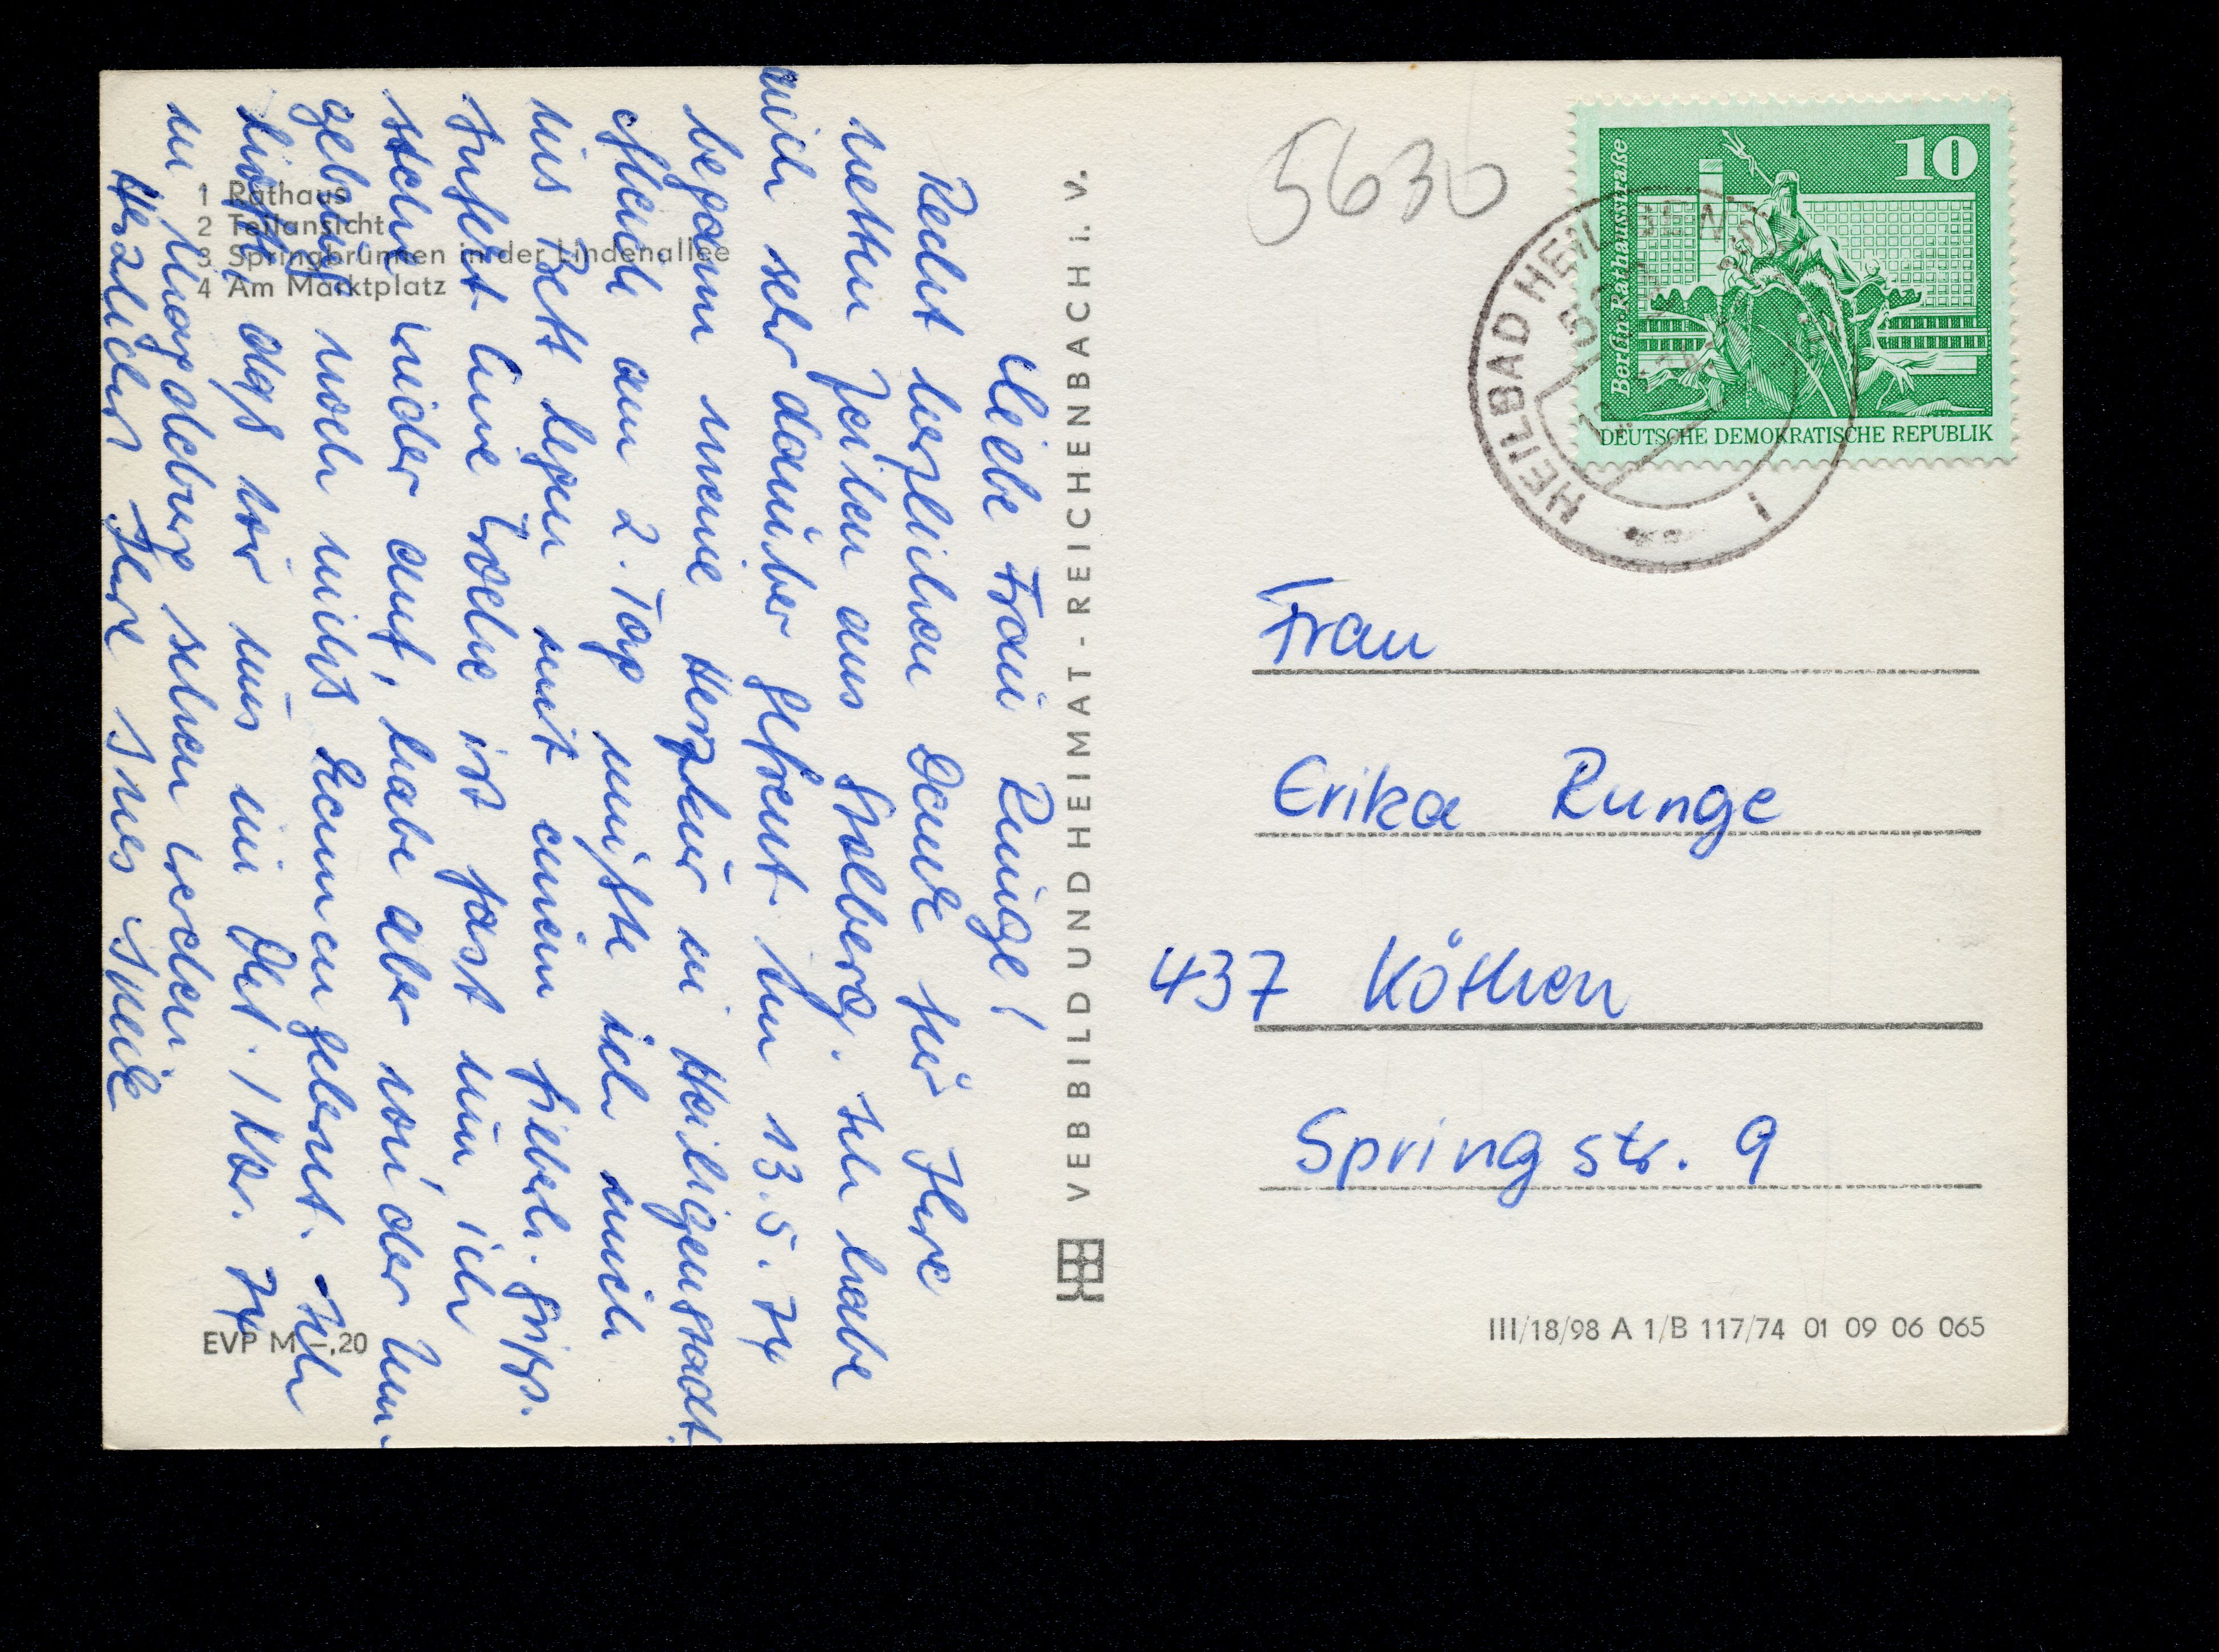 1 Rathaus
2 Teilansicht
3 Springbrunnen in der Lindenallee
4 Am Marktplatz
Liebe Frau Runge!
Recht herzlichen Dank für Ihre
netten Zeilen aus Stolberg. Ich habe
mich sehr darüber gefreut. Am 13.5.74
begann meine Herzkur in Heiligenstadt.
Gleich am 2. Tag mußte ich mich
ins Bett legen mit einem fieberh.
Infekt. Eine Woche ist fast um ich
stehe wieder auf, habe aber von der Um-
gebung noch nichts kennengelernt. Ich
hoffe, daß wir uns im 74
in Magdeburg sehen werden
Herzlichst Ihre Ines
EVP M -,20
VEB BILD UND HEIMAT - REICHENBACH i. V.
5630
10
Berlin Rathausstraße
DEUTSCHE DEMOKRATISCHE REPUBLIK
HEILBAD HEILIGENST
Frau
Erika Runge
437 Köthen
Springstr. 9
III/18/98 A 1/B 117/74 01 09 06 065